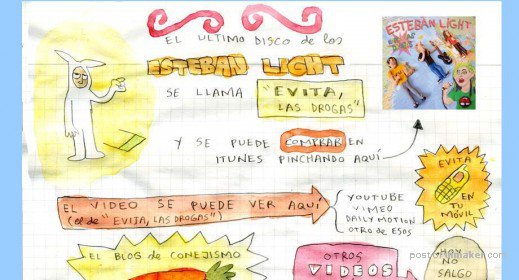 EL ULTIMO DISCO de los
ESTEBAN LIGHT
SE LLAMA "EVITA,
LAS DROGAS"
ESTEBAN LIGHT
Y SE PUEDE COMPRAR EN
ITUNES PINCHANDO AQUÍ
EVITA
EN
TU
MÓVIL
EL VIDEO SE PUEDE VER AQUÍ
(el de "EVITA, LAS DROGAS")
YOUTUBE
VIMEO
DAILY MOTION
OTRO de ESOS
EL BLOG de CONEJISMO
OTROS
VIDEOS
HOY
NO
SALGO